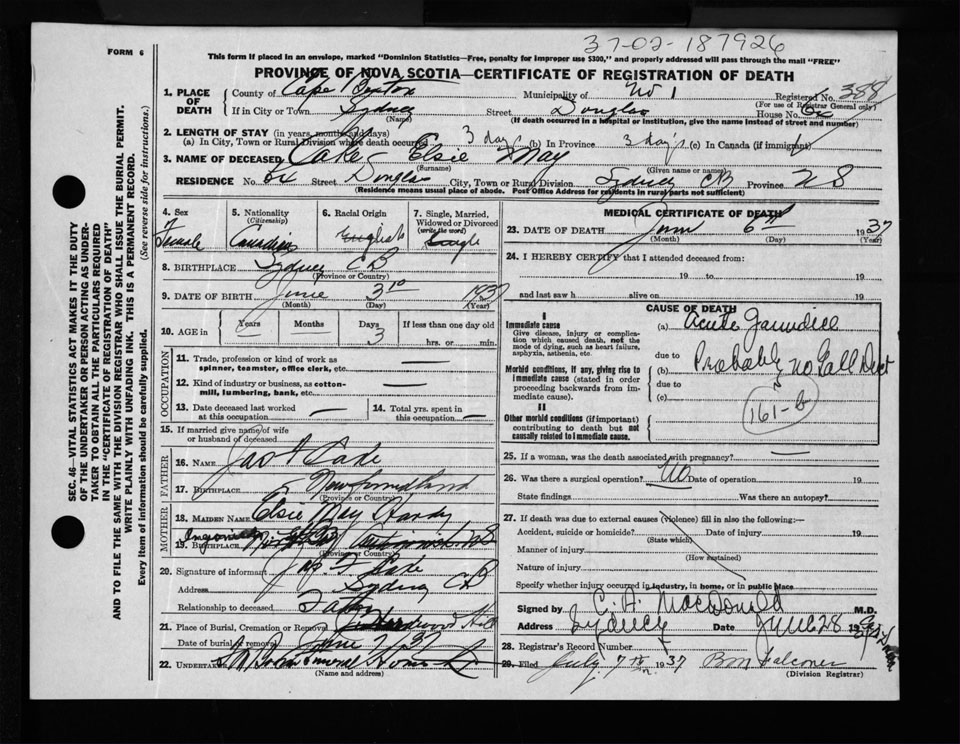 FORM 6
37-02-187926
This form if placed in an envelope, marked "Dominion Statistics—Free, penalty for improper use $300," and properly addressed will pass through the mail "FREE"
PROVINCE OF NOVA SCOTIA—CERTIFICATE OF REGISTRATION OF DEATH
1. PLACE OF DEATH
County of Cape Breton Municipality of No 1 Registered No. 388
(For use of Registrar General only)
If in City or Town Sydney Street Douglas House No.
(Name) (If death occurred in a hospital or institution, give the name instead of street and number)
2. LENGTH OF STAY (in years, months and days)
(a) In City, Town or Rural Division where death occurred 3 days (b) In Province 3 day's (c) In Canada (if immigrant)
3. NAME OF DECEASED Cake Elsie May
(Surname) (Given name or names)
RESIDENCE No. Street Douglas City, Town or Rural Division Sydney CB Province N S
(Residence means usual place of abode. Post Office Address for residents in rural parts not sufficient)
4. Sex
Female
5. Nationality
(Citizenship)
Canadian
6. Racial Origin
English
7. Single, Married, Widowed or Divorced
(write the word)
Single
8. BIRTHPLACE Sydney CB
(Province or Country)
9. DATE OF BIRTH June 3rd 1937
(Month) (Day) (Year)
10. AGE in
Years Months Days If less than one day old
— 3 hrs. or min.
OCCUPATION
11. Trade, profession or kind of work as spinner, teamster, office clerk, etc. —
12. Kind of industry or business, as cotton-mill, lumbering, bank, etc. —
13. Date deceased last worked at this occupation —
14. Total yrs. spent in this occupation —
15. If married give name of wife or husband of deceased
FATHER
16. NAME Jas F Cake
17. BIRTHPLACE Newfoundland
(Province or Country)
MOTHER
18. MAIDEN NAME Elsie May Hardy
19. BIRTHPLACE
(Province or Country)
20. Signature of informant Jas. F Cake
Address Sydney CB
Relationship to deceased Father
21. Place of Burial, Cremation or Removal Hardwood Hill
Date of burial or removal June 7 37
22. UNDERTAKER Funeral Home
(Name and address)
MEDICAL CERTIFICATE OF DEATH
23. DATE OF DEATH June 6th 1937
(Month) (Day) (Year)
24. I HEREBY CERTIFY that I attended deceased from:
19 to 19
and last saw h alive on 19
CAUSE OF DEATH
I
Immediate cause
Give disease, injury or complication which caused death, not the mode of dying, such as heart failure, asphyxia, asthenia, etc.
(a) Acute Jaundice
due to
Morbid conditions, if any, giving rise to immediate cause (stated in order proceeding backwards from immediate cause).
(b) Probably no Gall Duct
due to
(c)
161-b
II
Other morbid conditions (if important) contributing to death but not causally related to immediate cause.
25. If a woman, was the death associated with pregnancy? —
26. Was there a surgical operation? No Date of operation 19
State findings Was there an autopsy?
27. If death was due to external causes (violence) fill in also the following:—
Accident, suicide or homicide? Date of injury 19
(State which)
Manner of injury
(How sustained)
Nature of injury
Specify whether injury occurred in industry, in home, or in public place
Signed by C. A. MacDonald M.D.
Address Sydney Date June 28 19
28. Registrar's Record Number
29. Filed July 7th 1937 Falconer
(Division Registrar)
SEC. 46—VITAL STATISTICS ACT MAKES IT THE DUTY OF THE UNDERTAKER OR PERSON ACTING AS UNDERTAKER TO OBTAIN ALL THE PARTICULARS REQUIRED IN THE "CERTIFICATE OF REGISTRATION OF DEATH"
AND TO FILE THE SAME WITH THE DIVISION REGISTRAR WHO SHALL ISSUE THE BURIAL PERMIT.
WRITE PLAINLY WITH UNFADING INK. THIS IS A PERMANENT RECORD.
Every item of information should be carefully supplied. (See reverse side for instructions.)